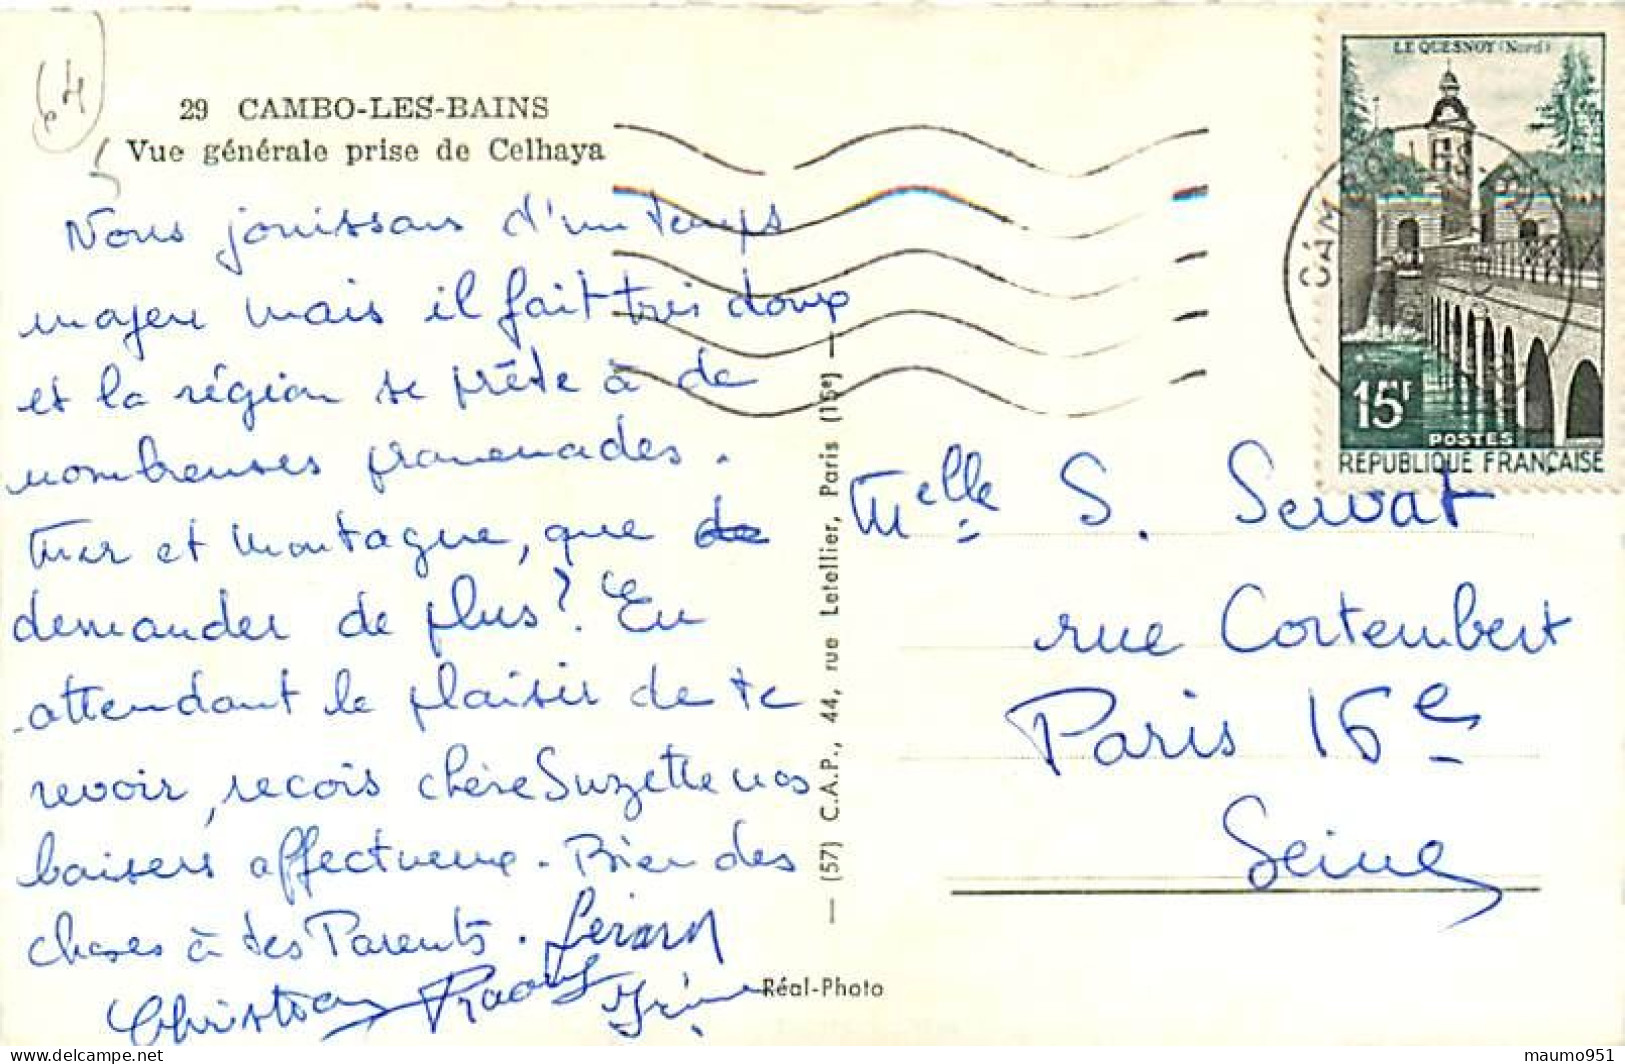 64
29 CAMBO-LES-BAINS
Vue générale prise de Celhaya
Nous jouissons d'un temps
moyen mais il fait très doux
et la région se prête à de
nombreuses promenades.
Mer et Montagne, que de
demander de plus? En
attendant le plaisir de te
revoir, reçois chère Suzette nos
baisers affectueux. Bien des
choses à tes Parents. Gérard
Christian Raoul Irène
— (57) C.A.P., 44, rue Letellier, Paris (15e) —
Réal-Photo
LE QUESNOY (Nord)
15F
POSTES
REPUBLIQUE FRANÇAISE
Melle S. Servat
rue Cortembert
Paris 16e
Seine
maumo951